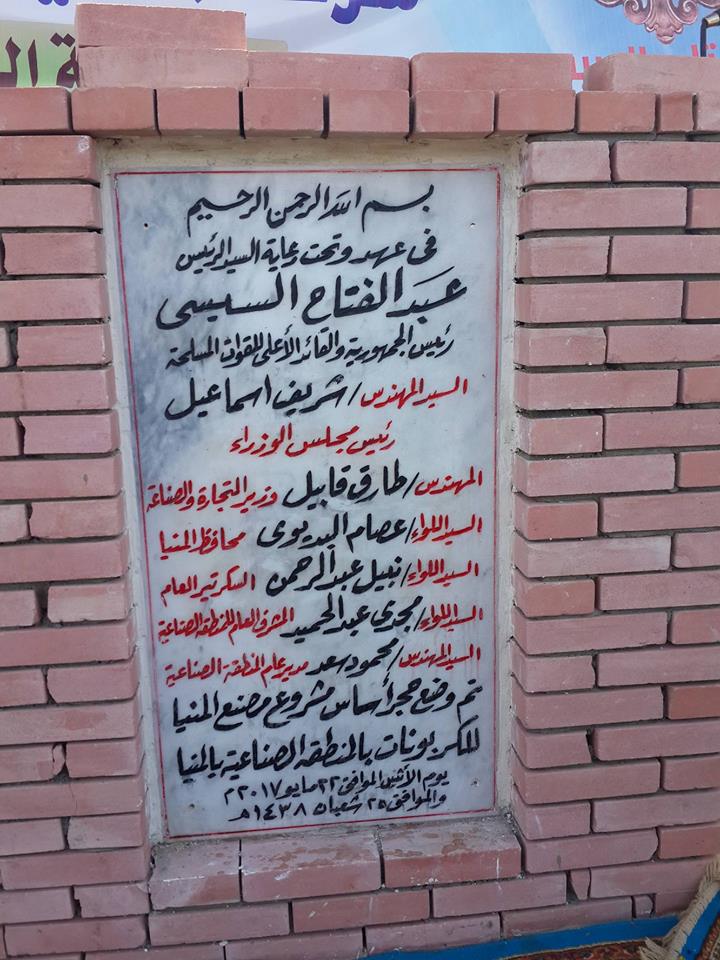 بسم الله الرحمن الرحيم
فى عهد وتحت رعاية السيد الرئيس
عبد الفتاح السيسى
رئيس الجمهورية والقائد الأعلى للقوات المسلحة
السيد المهندس / شريف اسماعيل
رئيس مجلس الوزراء
المهندس / طارق قابيل وزير التجارة والصناعة
السيد اللواء / عصام البديوى محافظ المنيا
السيد اللواء / نبيل عبد الرحمن السكرتير العام
السيد اللواء / مجدى عبد الحميد المشرف العام للمنطقة الصناعية
السيد المهندس / محمود سعد مدير عام المنطقة الصناعية
تم وضع حجر أساس مشروع مصنع المنيا
للكربونات بالمنطقة الصناعية بالمنيا
يوم الأثنين الموافق ٢٢ مايو ٢٠١٧ م
والموافق ٢٥ شعبان ١٤٣٨ هـ